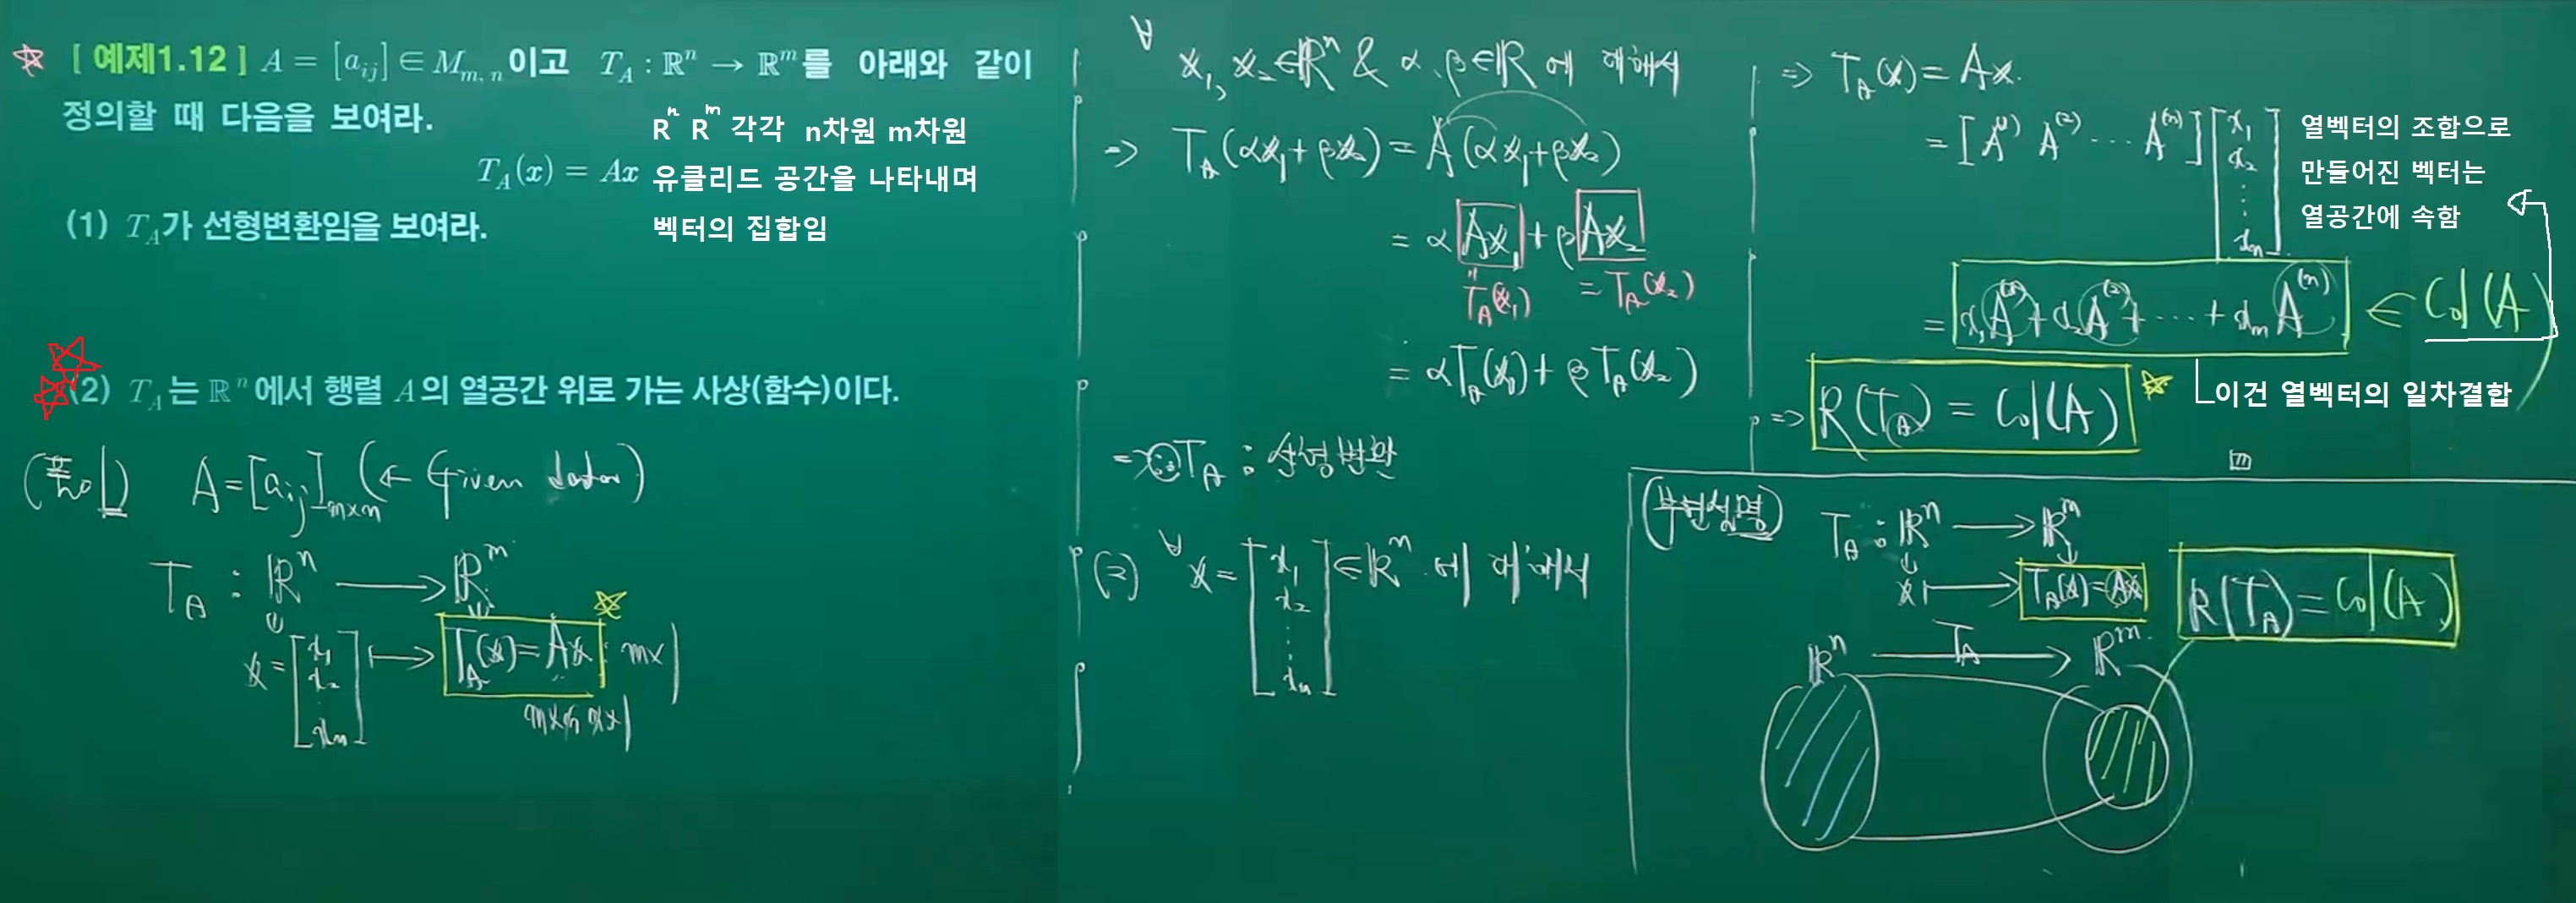 ☆ [ 예제1.12 ] A = [a_{ij}] ∈ M_{m, n} 이고 T_A : ℝ^n → ℝ^m를 아래와 같이
정의할 때 다음을 보여라.
R^n R^m 각각 n차원 m차원
T_A(x) = Ax 유클리드 공간을 나타내며
(1) T_A가 선형변환임을 보여라. 벡터의 집합임
(2) T_A는 ℝ^n에서 행렬 A의 열공간 위로 가는 사상(함수)이다.
(풀이) A = [a_{ij}]_{m×n} (← Given data)
T_A : ℝ^n → ℝ^m
x = [x_1 x_2 ⋮ x_n] ↦ T_A(x) = Ax : m×1
m×n n×1
∀ x_1, x_2 ∈ ℝ^n & α, β ∈ ℝ 에 대해서
⇒ T_A(αx_1 + βx_2) = A(αx_1 + βx_2)
= αAx_1 + βAx_2
T_A(x_1) = T_A(x_2)
= αT_A(x_1) + βT_A(x_2)
⇒ ∴ T_A : 선형변환
(2) ∀ x = [x_1 x_2 ⋮ x_n] ∈ ℝ^n 에 대해서
⇒ T_A(x) = Ax.
= [A^{(1)} A^{(2)} ⋯ A^{(n)}] [x_1 x_2 ⋮ x_n]
열벡터의 조합으로
만들어진 벡터는
열공간에 속함
= x_1A^{(1)} + x_2A^{(2)} + ⋯ + x_nA^{(n)} ∈ Col(A)
이건 열벡터의 일차결합
⇒ R(T_A) = Col(A) ☆
(부연설명) T_A : ℝ^n → ℝ^m
x ↦ T_A(x) = Ax
R(T_A) = Col(A)
ℝ^n T_A → ℝ^m